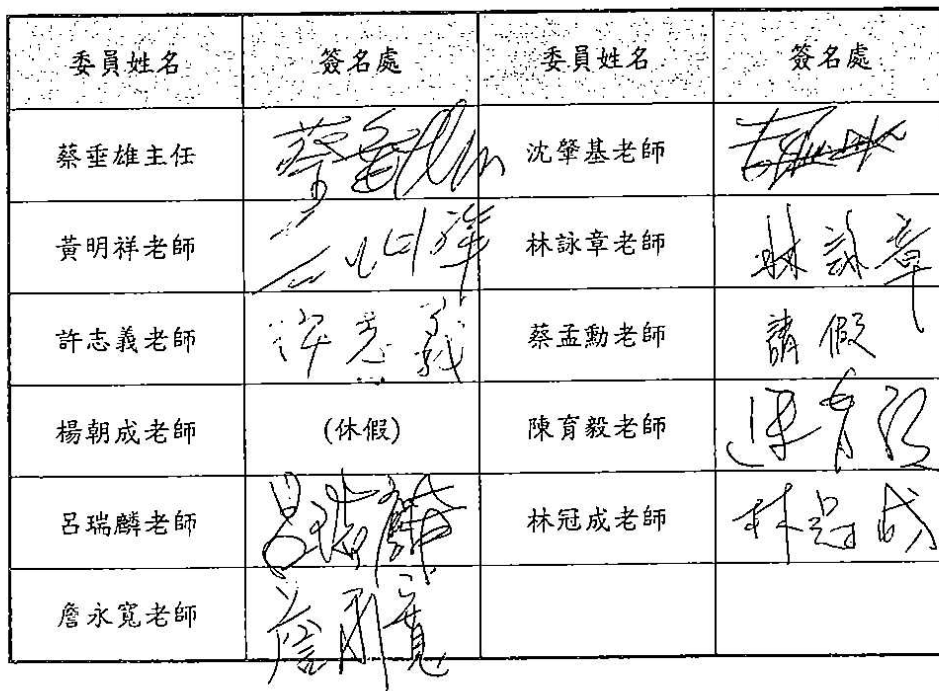 委員姓名 簽名處 委員姓名 簽名處
蔡垂雄主任 蔡垂雄 沈肇基老師
黃明祥老師 黃明祥 林詠章老師 林詠章
許志義老師 許志義 蔡孟勳老師 請假
楊朝成老師 (休假) 陳育毅老師 陳育毅
呂瑞麟老師 呂瑞麟 林冠成老師 林冠成
詹永寬老師 詹永寬